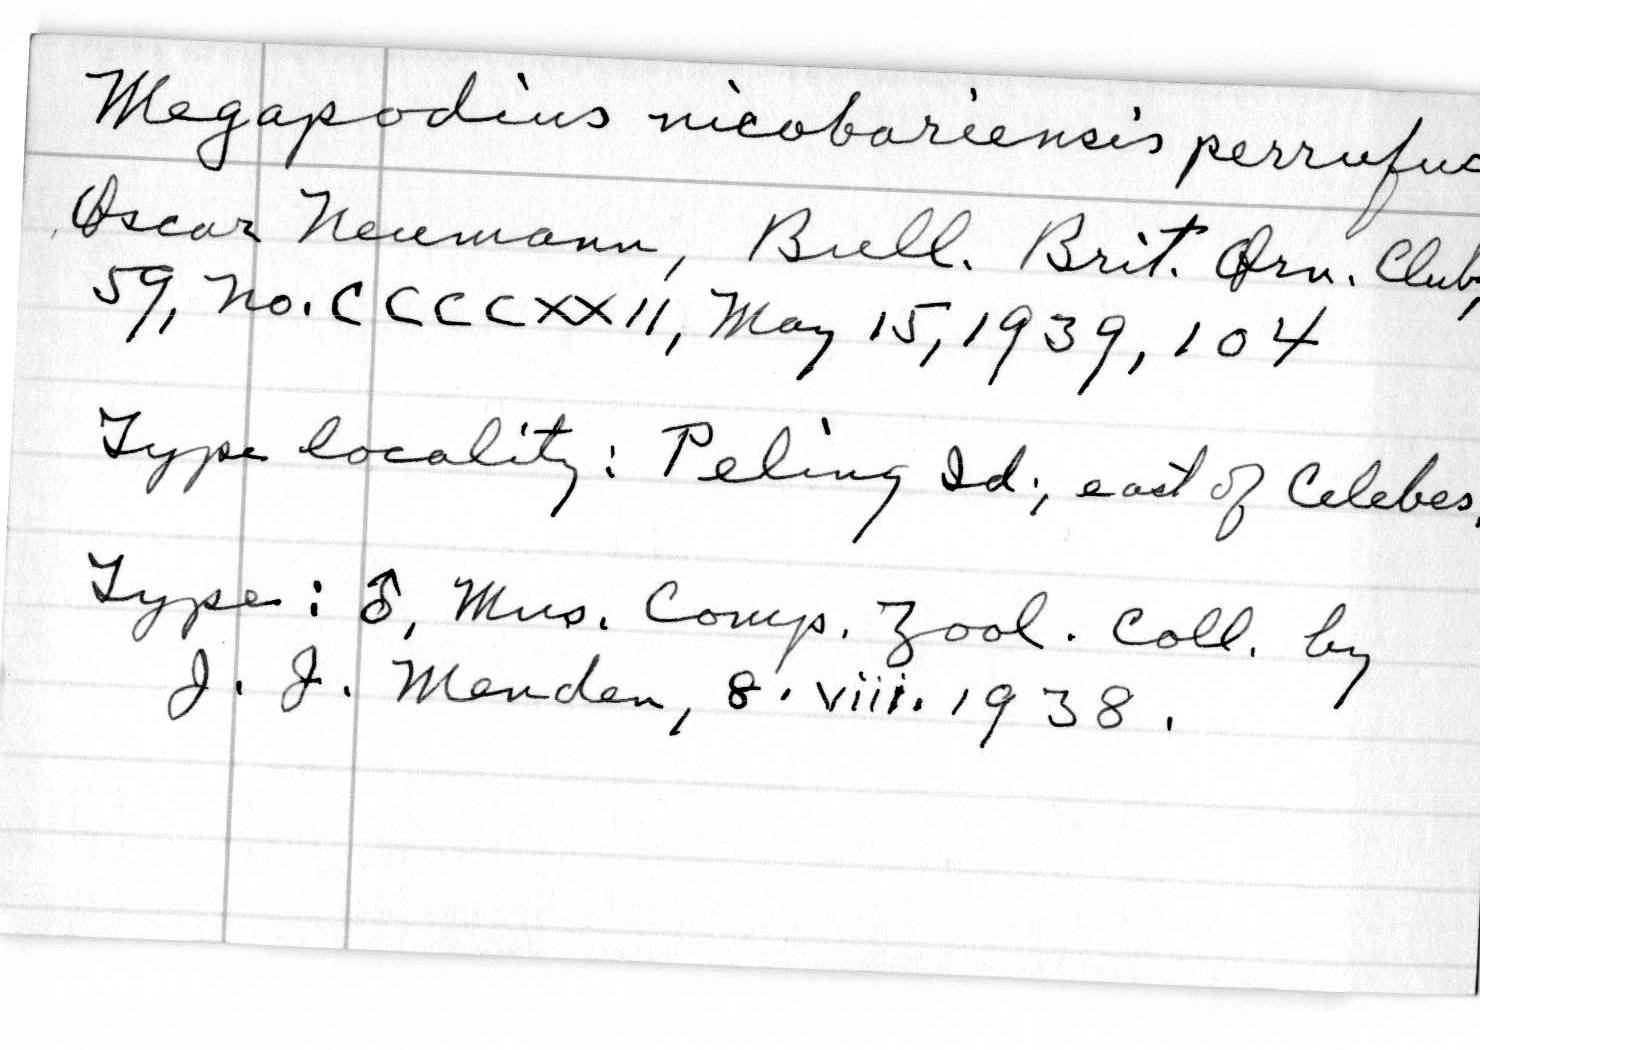 Megapodius nicobariensis perrufus
Oscar Neumann, Bull. Brit. Orn. Club,
59, No. CCCCXXII, May 15, 1939, 104
Type locality: Peling Id., east of Celebes.
Type: ♂, Mus. Comp. Zool. Coll. by
J. J. Menden, 8. viii. 1938.